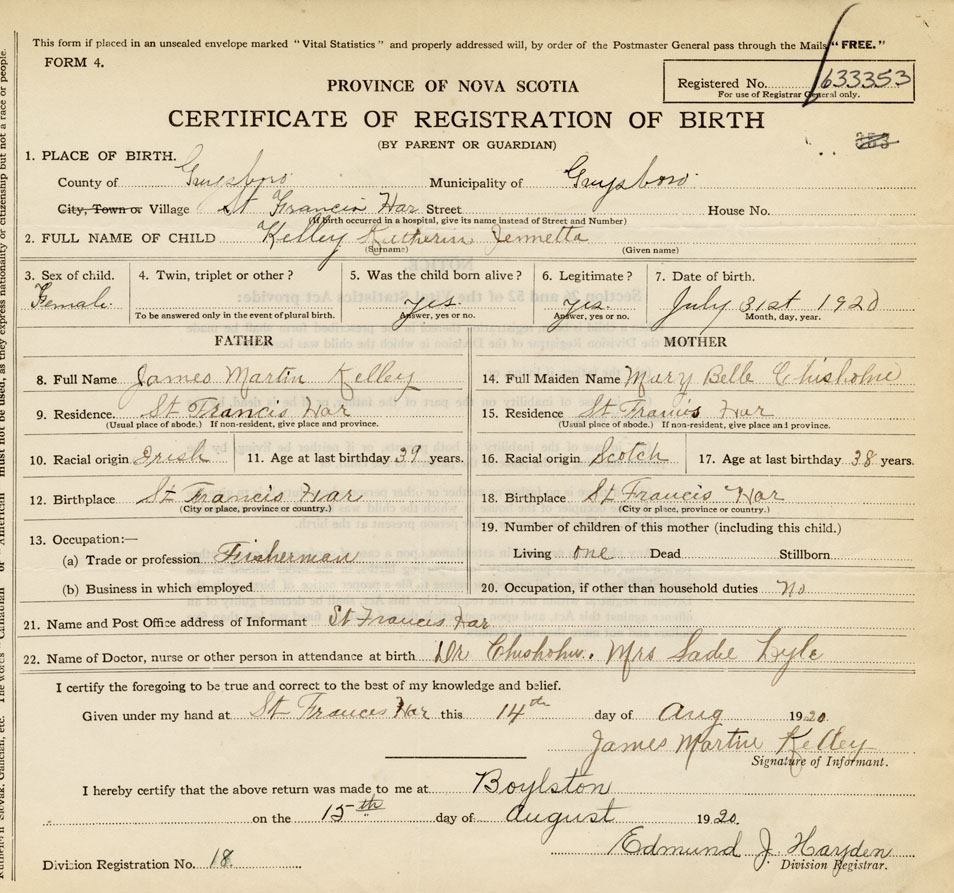 This form if placed in an unsealed envelope marked "Vital Statistics" and properly addressed will, by order of the Postmaster General pass through the Mails "FREE."
FORM 4.
Registered No. 633353
For use of Registrar General only.
PROVINCE OF NOVA SCOTIA
CERTIFICATE OF REGISTRATION OF BIRTH
(BY PARENT OR GUARDIAN)
353
1. PLACE OF BIRTH.
County of Guysboro Municipality of Guysboro
City, Town or Village St Francis Har Street House No.
(If birth occurred in a hospital, give its name instead of Street and Number)
2. FULL NAME OF CHILD Kelley Katherin Jennetta
(Surname) (Given name)
3. Sex of child. 4. Twin, triplet or other? 5. Was the child born alive? 6. Legitimate? 7. Date of birth.
Female yes. yes. July 31st 1920
To be answered only in the event of plural birth. Answer, yes or no. Answer, yes or no. Month, day, year.
FATHER MOTHER
8. Full Name James Martin Kelley 14. Full Maiden Name Mary Belle Chisholm
9. Residence. St Francis Har 15. Residence St Francis Har
(Usual place of abode.) If non-resident, give place and province. (Usual place of abode.) If non-resident, give place and province.
10. Racial origin Irish 11. Age at last birthday 39 years. 16. Racial origin Scotch 17. Age at last birthday 38 years.
12. Birthplace St Francis Har 18. Birthplace St Francis Har
(City or place, province or country.) (City or place, province or country.)
13. Occupation:— 19. Number of children of this mother (including this child.)
(a) Trade or profession Fisherman Living one Dead Stillborn
(b) Business in which employed 20. Occupation, if other than household duties No
21. Name and Post Office address of Informant St Francis Har
22. Name of Doctor, nurse or other person in attendance at birth Dr Chisholm. Mrs Sadie Lyle
I certify the foregoing to be true and correct to the best of my knowledge and belief.
Given under my hand at St Francis Har this 14th day of Aug 1920.
James Martin Kelley
Signature of Informant.
I hereby certify that the above return was made to me at Boylston
on the 15th day of August 1920.
Edmund J. Hayden
Division Registrar.
Division Registration No. 18
must not be used, as they express nationality or citizenship but not a race or people.